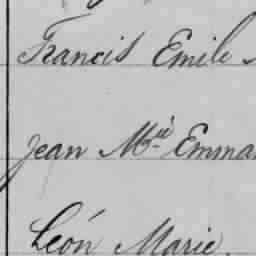 Francis Emile
Jean M.ie Emma
Léon Marie.